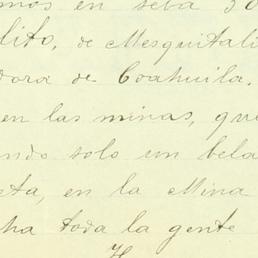 mos en seba 30
lito, de Mesquitali
dora de Coahuila.
en las minas, qu
ndo solo un bela
ta, en la Mina
ha toda la gente